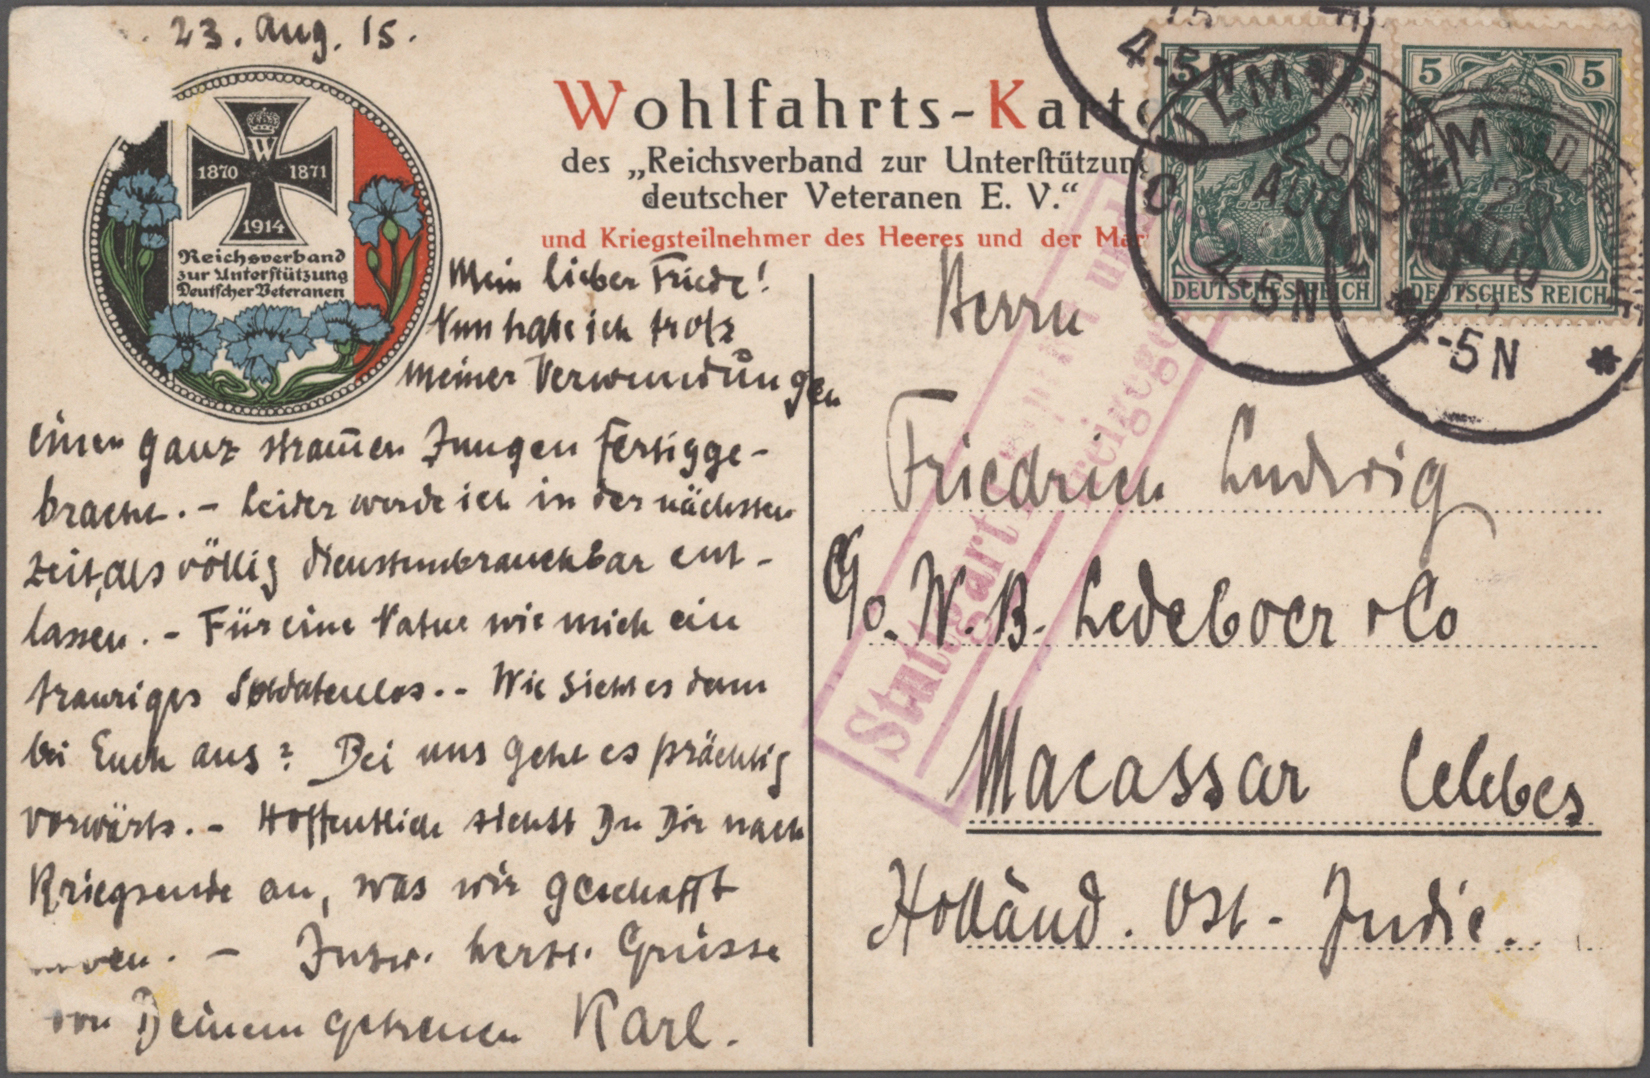 23. Aug. 15.
Wohlfahrts-Karte
des „Reichsverband zur Unterstützung
deutscher Veteranen E. V.“
und Kriegsteilnehmer des Heeres und der Mar
W
1870 1871
1914
Reichsverband
zur Unterstützung
Deutscher Veteranen
Mein lieber Friede!
Nun habe ich trotz
meiner Verwundungen
einen ganz stram̄en Jungen fertigge-
bracht. - Leider werde ich in der nächsten
Zeit, als völlig dienstunbrauchbar ent-
lassen. - Für eine Natur wie mich ein
trauriges Soldatenlos. - Wie sieht es denn
bei Euch aus? Bei uns geht es prächtig
vorwärts. - Hoffentlich siehst Du Dir nach
Kriegsende an, was wir geschafft
- Inzw. herzl. Grüsse
von Deinem getreuen Karl.
Herrn
Friedrich Ludwig
C/o. W. B. Ledeboer & Co
Macassar Celebes
Holländ. Ost-Indie.
5 5
DEUTSCHES REICH
5 5
DEUTSCHES REICH
4-5N
CULM
29
AUG
4-5N
29
AUG
-5N
Stuttgart